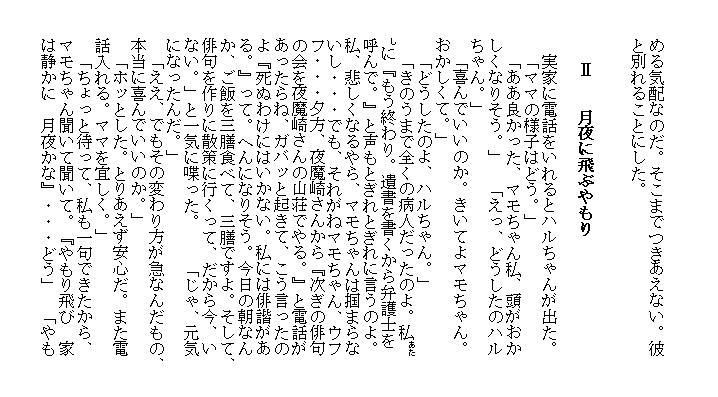 める気配なのだ。そこまでつきあえない。彼
と別れることにした。
Ⅱ 月夜に飛ぶやもり
実家に電話をいれるとハルちゃんが出た。
「ママの様子はどう。」
「ああ良かった、マモちゃん私、頭がおか
しくなりそう。」 「えっ、どうしたのハル
ちゃん。」
「喜んでいいのか。きいてよマモちゃん。
おかしくて。」
「どうしたのよ、ハルちゃん。」
「きのうまで全くの病人だったのよ。私あた
しに『もう終わり。遺書を書くから弁護士を
呼んで。』と声もとぎれとぎれに言うのよ。
私、悲しくなるやら、マモちゃんは掴まらな
いし・・・でも、それがねマモちゃん、ウフ
フ・・・夕方、夜魔崎さんから『次ぎの俳句
の会を夜魔崎さんの山荘でやる。』と電話が
あったらね、ガバッと起きて、こう言ったの
よ『死ぬわけにはいかない。私には俳諧があ
る。』って。へんになりそう。今日の朝なん
か、ご飯を三膳食べて、三膳ですよ。そして、
俳句を作りに散策に行くって、だから今、い
ない。」と一気に喋った。 「じゃ、元気
になったんだ。」
「ええ、でもその変わり方が急なんだもの、
本当に喜んでいいのか。」
「ホッとした。とりあえず安心だ。また電
話入れる。ママを宜しく。」
「ちょっと待って、私も一句できたから、
マモちゃん聞いて聞いて。『やもり飛び 家
は静かに 月夜かな』・・・どう」 「やも